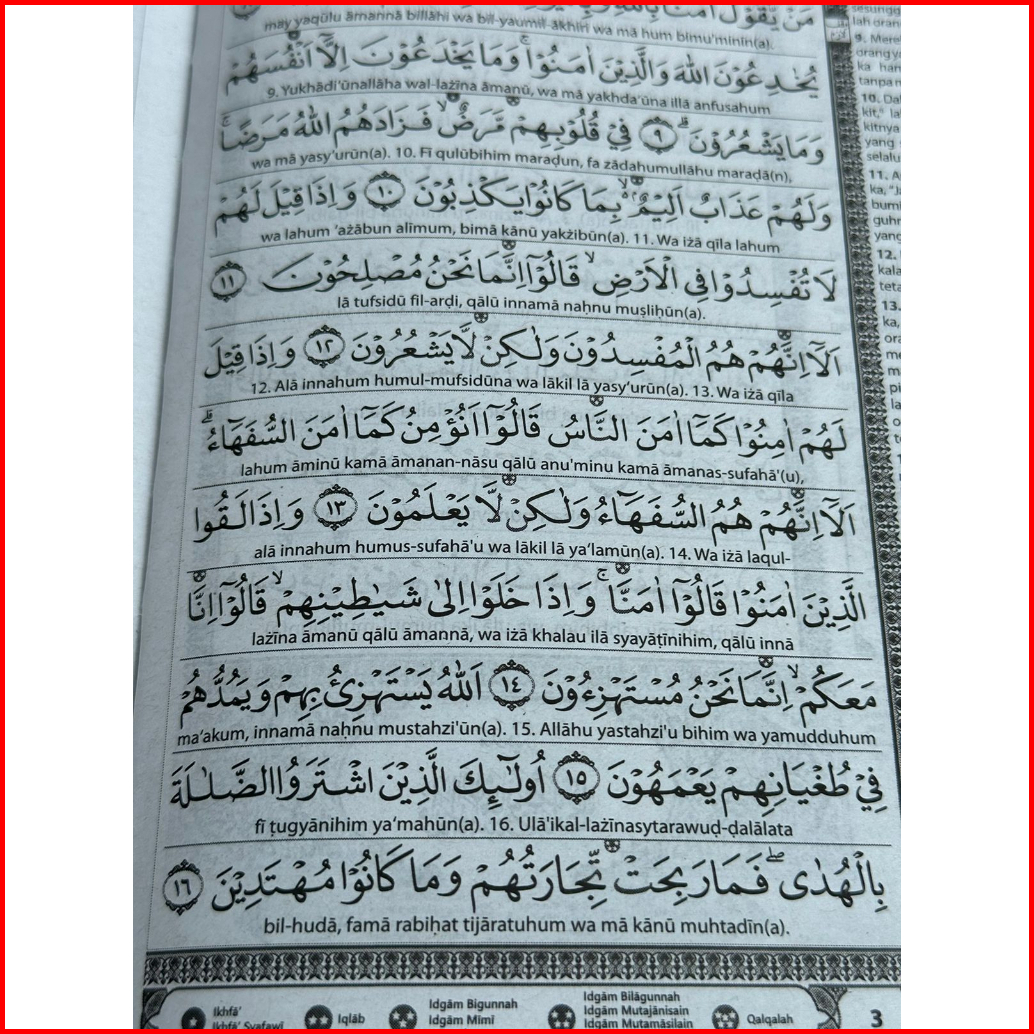 مَنْ يَّقُوْلُ اٰمَنَّا بِاللّٰهِ
may yaqūlu āmannā billāhi wa bil-yaumil-ākhiri wa mā hum bimu'minīn(a).
يُخٰدِعُوْنَ اللّٰهَ وَالَّذِيْنَ اٰمَنُوْا ۚ وَمَا يَخْدَعُوْنَ اِلَّآ اَنْفُسَهُمْ
9. Yukhādi‘ūnallāha wal-lażīna āmanū, wa mā yakhda‘ūna illā anfusahum
وَمَا يَشْعُرُوْنَۗ ٩ فِيْ قُلُوْبِهِمْ مَّرَضٌۙ فَزَادَهُمُ اللّٰهُ مَرَضًاۚ
wa mā yasy‘urūn(a). 10. Fī qulūbihim maraḍun, fa zādahumullāhu maraḍā(n),
وَلَهُمْ عَذَابٌ اَلِيْمٌ ۢ ۙ بِمَا كَانُوْا يَكْذِبُوْنَ ١٠ وَاِذَا قِيْلَ لَهُمْ
wa lahum ‘ażābun alīmum, bimā kānū yakżibūn(a). 11. Wa iżā qīla lahum
لَا تُفْسِدُوْا فِى الْاَرْضِۙ قَالُوْٓا اِنَّمَا نَحْنُ مُصْلِحُوْنَ ١١
lā tufsidū fil-arḍi, qālū innamā naḥnu muṣliḥūn(a).
اَلَآ اِنَّهُمْ هُمُ الْمُفْسِدُوْنَ وَلٰكِنْ لَّا يَشْعُرُوْنَ ١٢ وَاِذَا قِيْلَ
12. Alā innahum humul-mufsidūna wa lākil lā yasy‘urūn(a). 13. Wa iżā qīla
لَهُمْ اٰمِنُوْا كَمَآ اٰمَنَ النَّاسُ قَالُوْٓا اَنُؤْمِنُ كَمَآ اٰمَنَ السُّفَهَاۤءُۗ
lahum āminū kamā āmanan-nāsu qālū anu'minu kamā āmanas-sufahā'(u),
اَلَآ اِنَّهُمْ هُمُ السُّفَهَاۤءُ وَلٰكِنْ لَّا يَعْلَمُوْنَ ١٣ وَاِذَا لَقُوا
alā innahum humus-sufahā'u wa lākil lā ya‘lamūn(a). 14. Wa iżā laqul-
الَّذِيْنَ اٰمَنُوْا قَالُوْٓا اٰمَنَّا ۚ وَاِذَا خَلَوْا اِلٰى شَيٰطِيْنِهِمْۙ قَالُوْٓا اِنَّا
lażīna āmanū qālū āmannā, wa iżā khalau ilā syayāṭīnihim, qālū innā
مَعَكُمْۙ اِنَّمَا نَحْنُ مُسْتَهْزِءُوْنَ ١٤ اَللّٰهُ يَسْتَهْزِئُ بِهِمْ وَيَمُدُّهُمْ
ma‘akum, innamā naḥnu mustahzi'ūn(a). 15. Allāhu yastahzi'u bihim wa yamudduhum
فِيْ طُغْيَانِهِمْ يَعْمَهُوْنَ ١٥ اُولٰۤىِٕكَ الَّذِيْنَ اشْتَرَوُا الضَّلٰلَةَ
fī ṭugyānihim ya‘mahūn(a). 16. Ulā'ikal-lażīnasytarawuḍ-ḍalālata
بِالْهُدٰىۖ فَمَا رَبِحَتْ تِّجَارَتُهُمْ وَمَا كَانُوْا مُهْتَدِيْنَ ١٦
bil-hudā, famā rabiḥat tijāratuhum wa mā kānū muhtadīn(a).
lah oran
9. Mere
orang y
ka han
tanpa
10. Da
kit,” la
kitnya
yang
selalu
11.
ka, “J
bum
guhn
yang
12.
kala
13.
ka,
Ikhfā' Iqlāb Idgām Bigunnah Idgām Bilāgunnah Qalqalah 3
Ikhfā' Syafawī Idgām Mīmī Idgām Mutajānisain
Idgām Mutamāṡilain